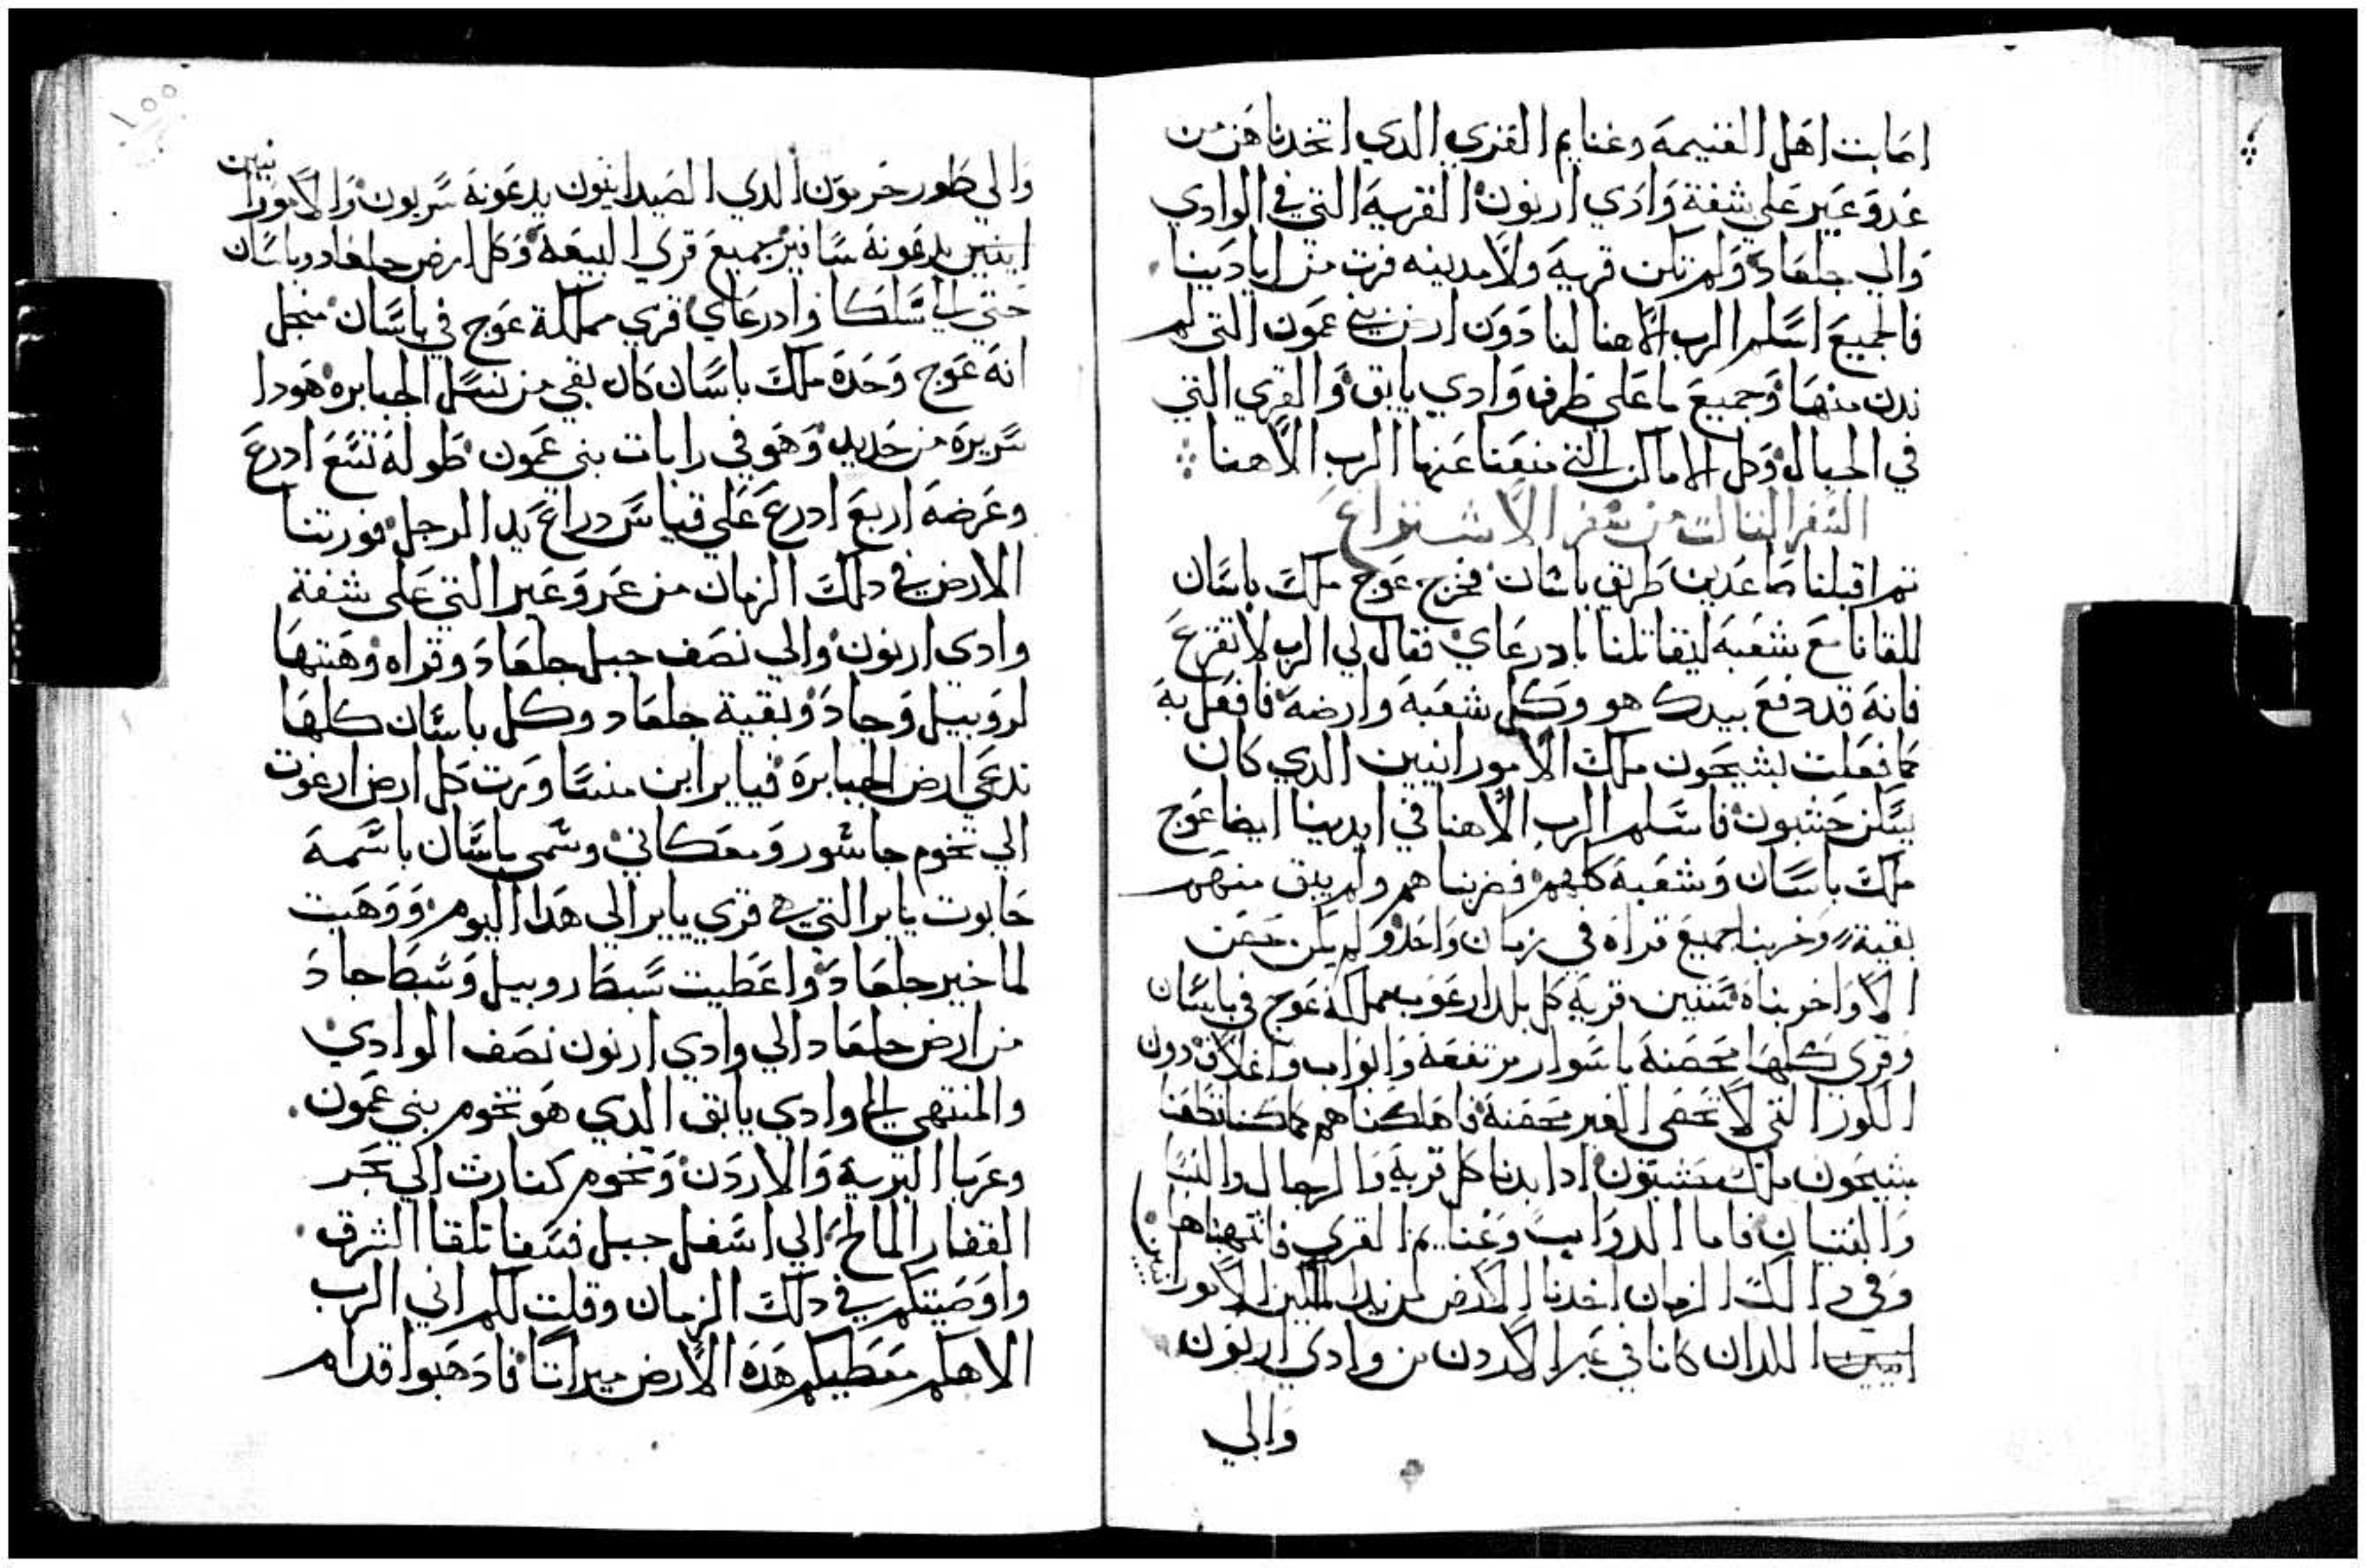 اصابت اهل الغنيمه وغنايم القري الدي اتخدناهن من
عروعير علي شفة وادي ارنون القريه التي في الوادي
والي جلعاد ولم تكن قرية ولا مدينه فرت من ايادينا
فالجميع اسلم الرب الاهنا لنا دون ارض بني عمون التي لم
ندن منها وجميع ما علي طرف وادي يابق والقري التي
في الجبال وكل الاماكن التي منعنا عنها الرب الاهنا
السفر التالت من سفر الاشتراع
تم اقبلنا صاعدين طريق باسان فخرج عوج ملك باسان
للقانا مع شعبه ليقاتلنا بادرعاي فقال لي الرب لا تفزع
فانه قد دفع بيدك هو وكل شعبه وارضه فافعل به
كما فعلت بشيحون ملك الامورانيين الدي كان
يسكن حشبون فاسلم الرب الاهنا في ايدينا ايضا عوج
ملك باسان وشعبه كلهم فضربناهم ولم يبق منهم
بقية وخربنا جميع قراه في زمان واحد ولم يكن
الا واخربناه ستين قرية كل بلد ارغوب مملكة عوج في باسان
وقري كلها محصنة باسوار مرتفعة وابواب واغلاق دون
الكور التي لا تحصي الغير محصنة فاهلكناهم كما كنا
بشيحون ملك حشبون ادا بدنا كل قرية والرجال والنسا
والفتيان فاما الدواب وغنايم القري فانتهبناها
وفي دالك الزمان اخدنا الارض من يد الملكين الامورانيين
انيين اللدان كانا في عبر الاردن من وادي ارنون
والي
١٥٥
والي طور حرمون الدي الصيدانيون يدعونه سريون والامورانيين
انيين يدعونه سانير جميع قري البيعة وكل ارض جلعاد وباسان
حتي الي سلكا وادرعاي قري مملكة عوج في باسان منجل
انه عوج وحده ملك باسان كان بقي من نسل الجبابره هودا
سريره من حديد وهو في رابات بني عمون طوله تسع ادرع
وعرضه اربع ادرع علي قياس دراع يد الرجل فورتنا
الارض في دلك الزمان من عروعير التي علي شفة
وادي ارنون والي نصف جبل جلعاد وقراه وهبتها
لروبيل وجاد وبقية جلعاد وكل باسان كلها
تدعي ارض الجبابرة فياير ابن منسا ورت كل ارض ارغوت
الي تخوم جاشور ومعكاتي وسمي باسان باسمه
حابوت ياير التي هي قري ياير الي هدا اليوم ووهبت
لماخير جلعاد واعطيت سبط روبيل وسبط جاد
من ارض جلعاد الي وادي ارنون نصف الوادي
والمنتهي الي وادي يابق الدي هو تخوم بني عمون
وعربا البرية والاردن وتخوم كنارت الي بحر
القفار المالح الي اسفل جبل فسغا تلقا الشرق
واوصيتكم في دلك الزمان وقلت لكم اني الرب
الاهكم معطيكم هده الارض ميراتا فادهبوا قدام